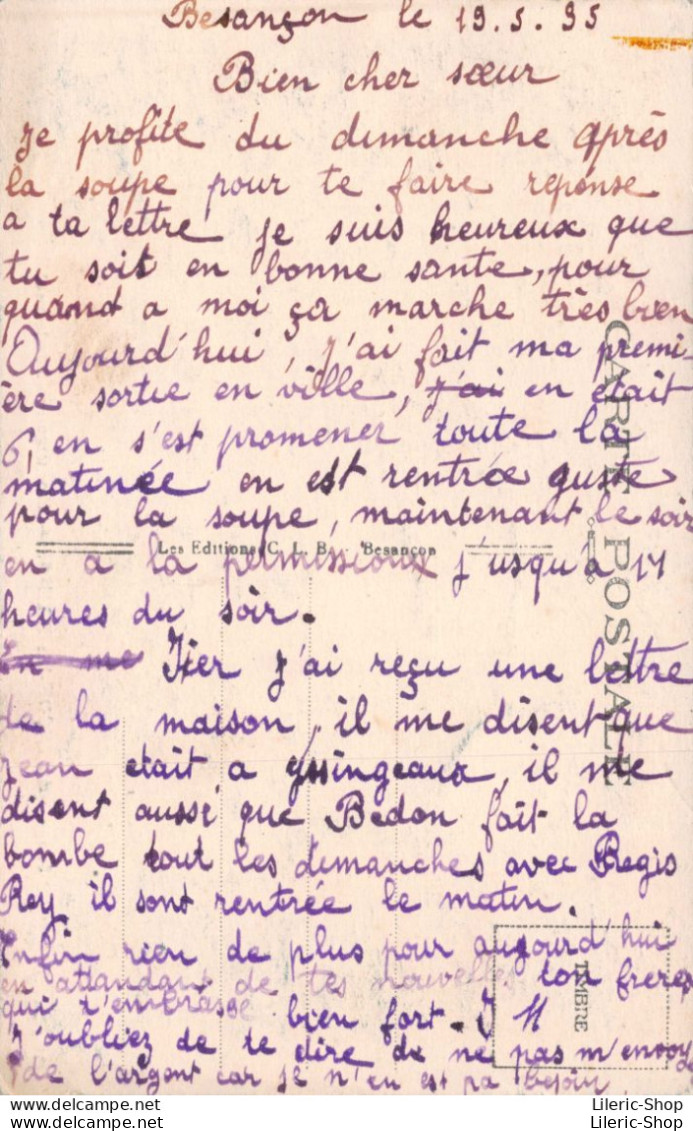 Besançon le 19.5.35
Bien cher sœur
je profite du dimanche après
la soupe pour te faire reponse
a ta lettre je suis heureux que
tu soit en bonne sante, pour
quand a moi ça marche très bien
Aujourd'hui, j'ai fait ma premi
ère sortie en ville, j'ai en était
6, en s'est promener toute la
matinée en est rentrée guste
pour la soupe, maintenant le soir
Les Editions C. L. B. - Besançon
en a la permissioux j'usqu'a 17
heures du soir.
En me Hier j'ai reçu une lettre
de la maison, il me disent que
jean etait a yssingeaux, il me
disent aussi que Bedon fait la
bombe tout les demanches avec Regis
Rey il sont rentrée le matin.
Enfin rien de plus pour aujourd'hui
en attandant de tes nouvelles ton frere
qui t'embrasse bien fort. J H
J'oubliez de te dire de ne pas m'envoy
de l'argent car je n'en est pa besoin
CARTE POSTALE
TIMBRE
Lileric-Shop
Lileric-Shop